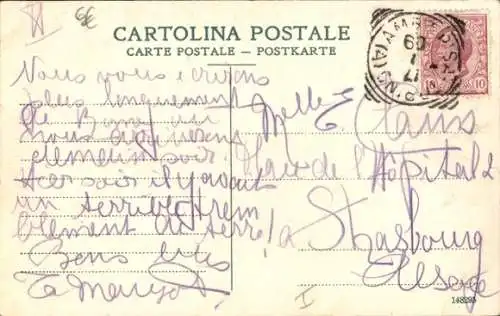 6€
CARTOLINA POSTALE
CARTE POSTALE - POSTKARTE
10 10
Nous vous écrivons
plus longuement
de Rome où
nous arriverons
demain soir.
Hier soir il y avait
un terrible trem
blement de terre!
Bons
Ta Margot
Melle E.
Place de l'Hôpital 2
à
Strasbourg
Alsace
I
148293